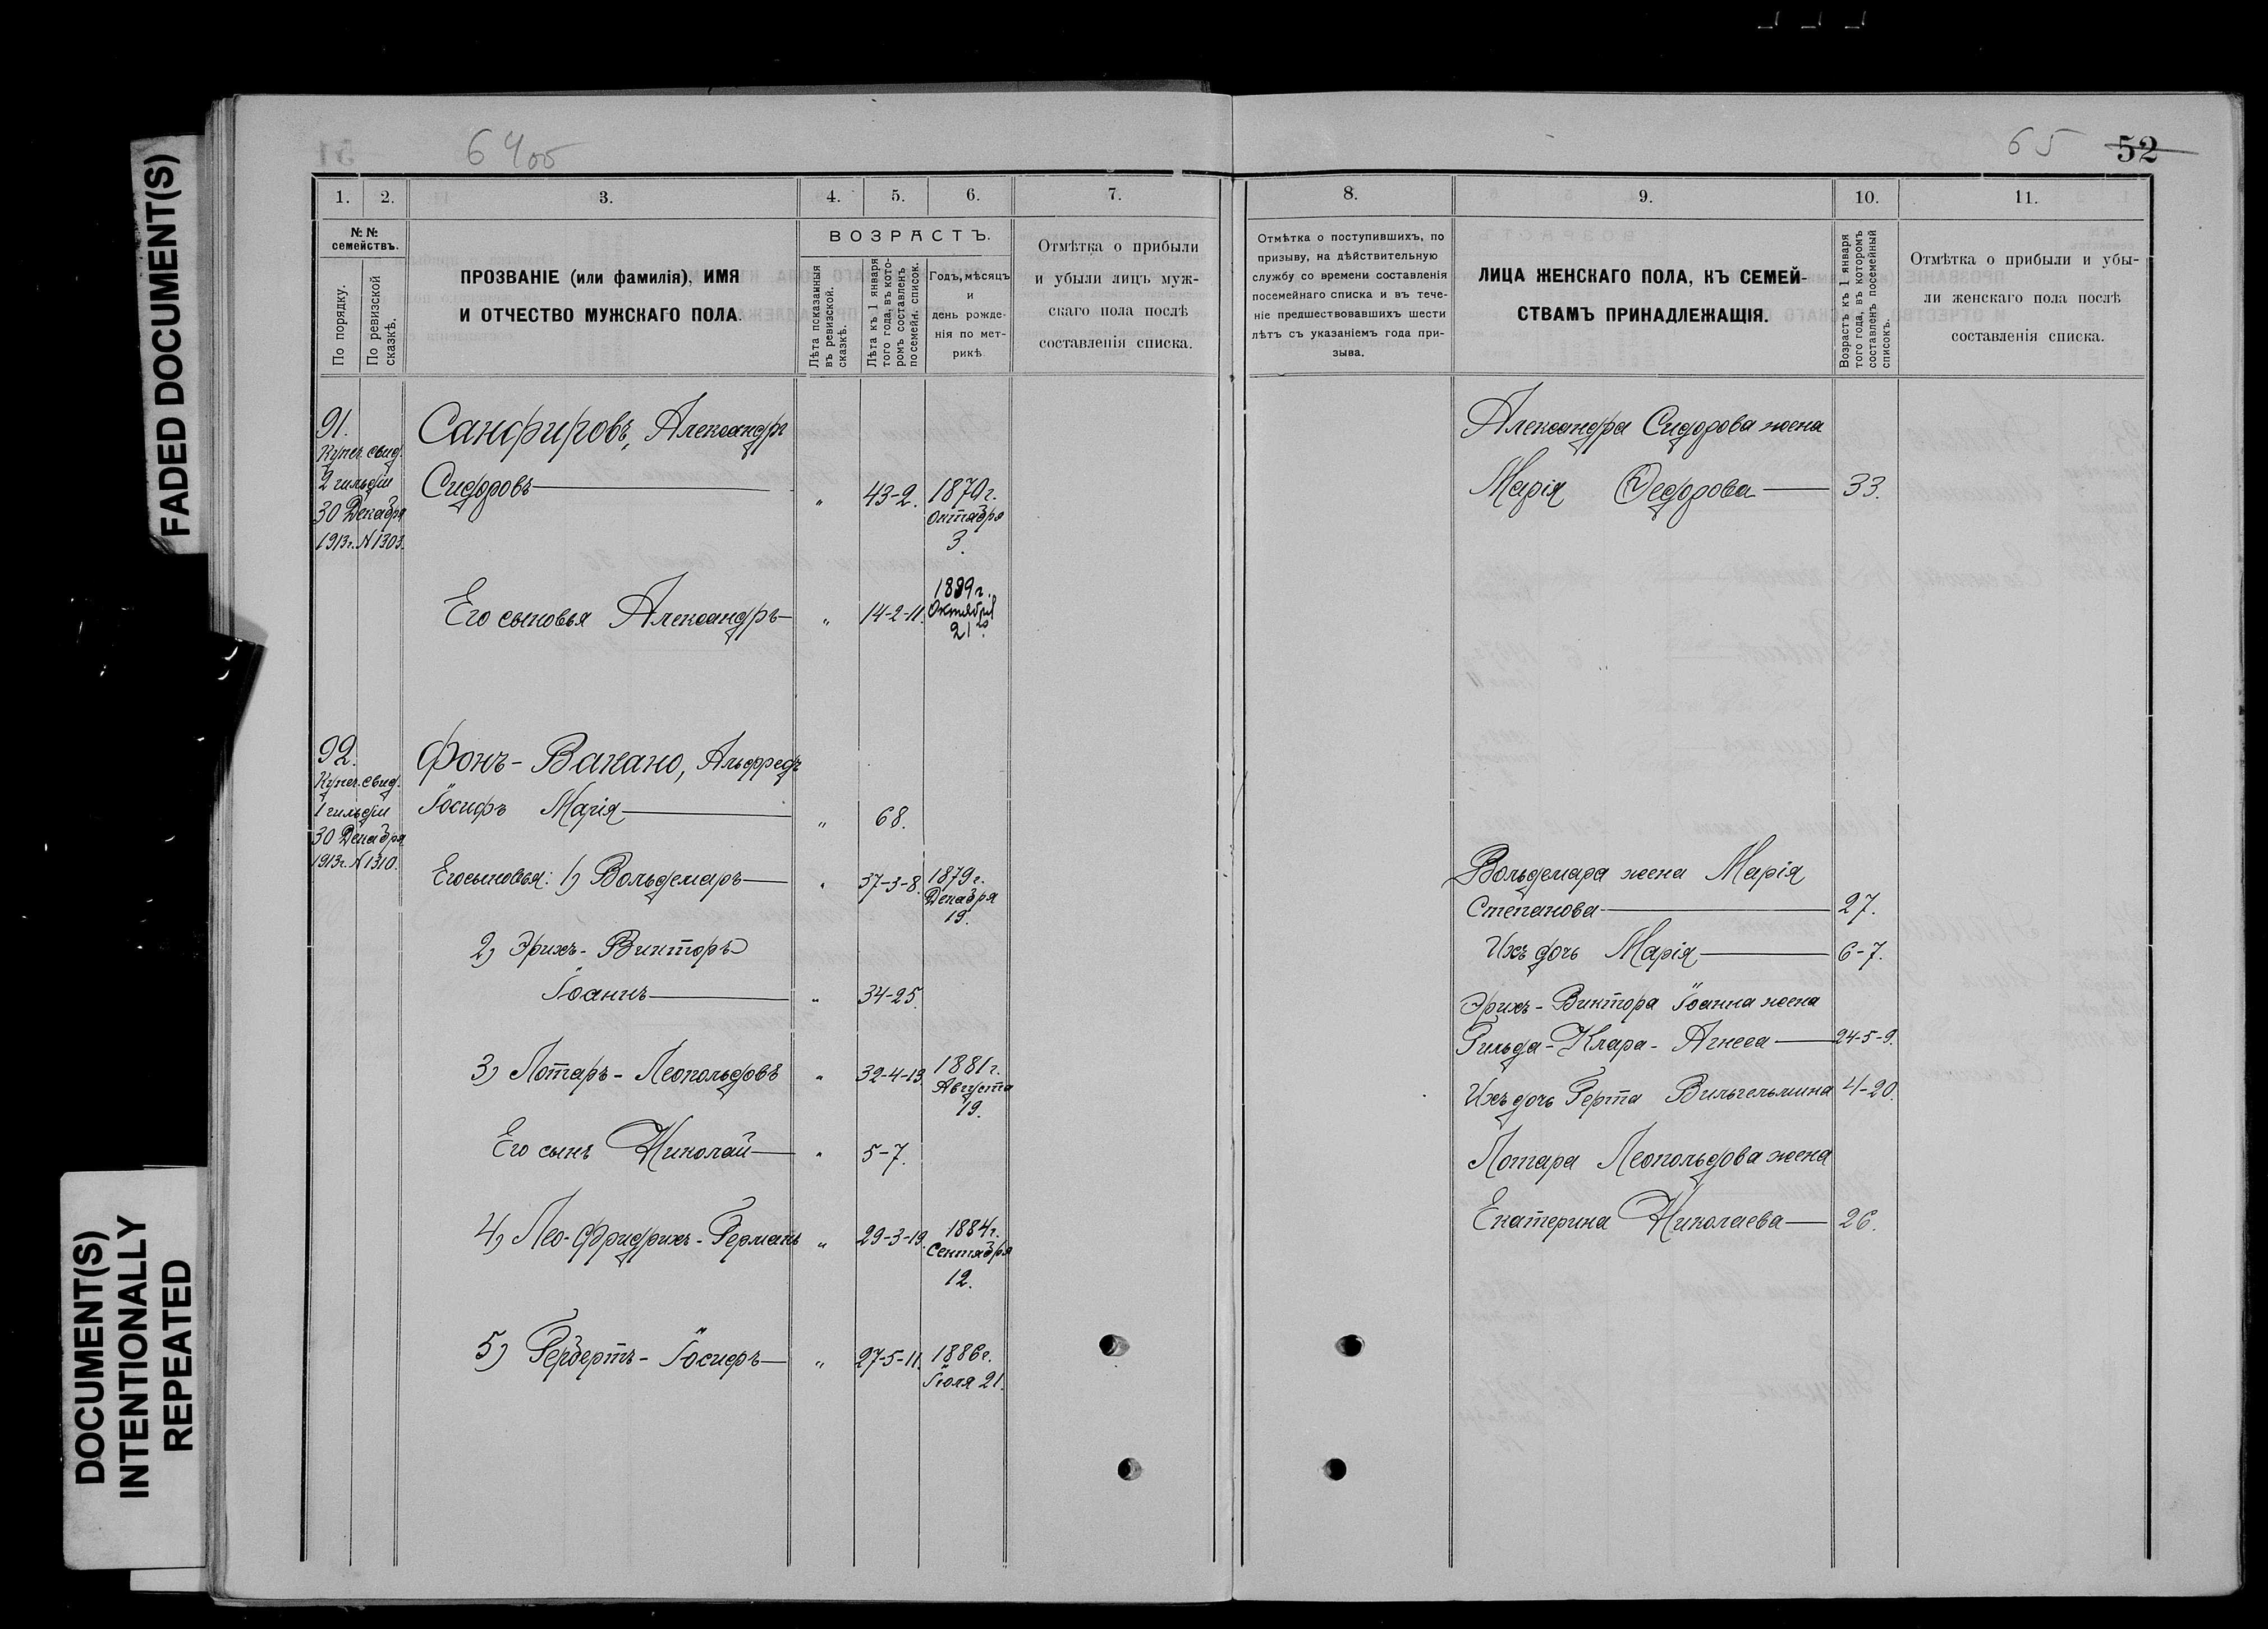 FADED DOCUMENT(S)
DOCUMENT(S)
INTENTIONALLY
REPEATED
64об
1. 2. 3. 4. 5. 6. 7.
№ №
семействъ.
По порядку.
По ревизской
сказкѣ.
ПРОЗВАНІЕ (или фамилія), ИМЯ
И ОТЧЕСТВО МУЖСКАГО ПОЛА.
ВОЗРАСТЪ.
Лѣта показанныя
въ ревизской.
сказкѣ.
Лѣта къ 1 января
того года, въ кото-
ромъ составленъ
посемейн. список.
Годъ, мѣсяцъ
и
день рожде-
нія по мет-
рикѣ
Отмѣтка о прибыли
и убыли лицъ муж-
скаго пола послѣ
составленія списка.
91.
Купеч. свид.
2 гильдіи
30 Декабря
1913г. N 1303.
Санфировъ, Александръ
Сидоровъ " 43-2. 1870г.
Октября
3.
Его сыновья Александръ " 14-2-11. 1899г.
Октября
21го.
92.
Купеч. свид.
1 гильдіи
30 Декабря
1913г. N 1310.
Фонъ-Вакано, Альфредъ
Іосифъ Марія " 68.
Его сыновья: 1) Вольдемаръ " 37-3-8. 1879г.
Декабря
19.
2) Эрихъ-Викторъ
Іоаннъ " 34-25
3) Лотаръ-Леопольдовъ " 32-4-13. 1881г.
Августа
19.
Его сынъ Николай " 5-7.
4) Лео-Фридрихъ-Германъ " 29-3-19. 1884г.
Сентября
12.
5) Гербертъ-Іосифъ " 27-5-11. 1886г.
Іюля 21.
65 52
8. 9. 10. 11.
Отмѣтка о поступившихъ, по
призыву, на дѣйствительную
службу со времени составленія
посемейнаго списка и въ тече-
ніе предшествовавшихъ шести
лѣтъ съ указаніемъ года при-
зыва.
ЛИЦА ЖЕНСКАГО ПОЛА, КЪ СЕМЕЙ-
СТВАМЪ ПРИНАДЛЕЖАЩІЯ.
Возрастъ къ 1 января
того года, въ которомъ
составленъ посемейный
списокъ.
Отмѣтка о прибыли и убы-
ли женскаго пола послѣ
составленія списка.
Александра Сидорова жена
Марія Ѳедорова 33.
Вольдемара жена Марія
Степанова 27.
Ихъ дочь Марія 6-7.
Эрихъ-Виктора Іоанна жена
Гильда-Клара-Агнеса 24-5-9.
Ихъ дочь Герта Вильгельмина 4-20.
Лотара Леопольдова жена
Екатерина Николаева 26.